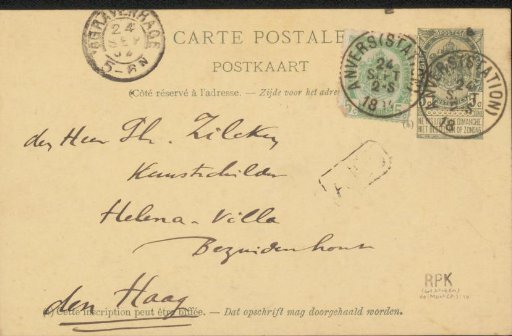 'S GRAVENHAGE
24
5-6N
CARTE POSTALE
POSTKAART
(Côté réservé à l'adresse. — Zijde voor het adres
ANVERS (STATION)
24
SEPT
2-S
ANVERS (STATION)
den Heer Ph. Zilcken
Kunstschilder
Helena-Villa
Bezuidenhout
den Haag
RPK
(*) Cette inscription peut être biffée. — Dat opschrift mag doorgehaald worden.